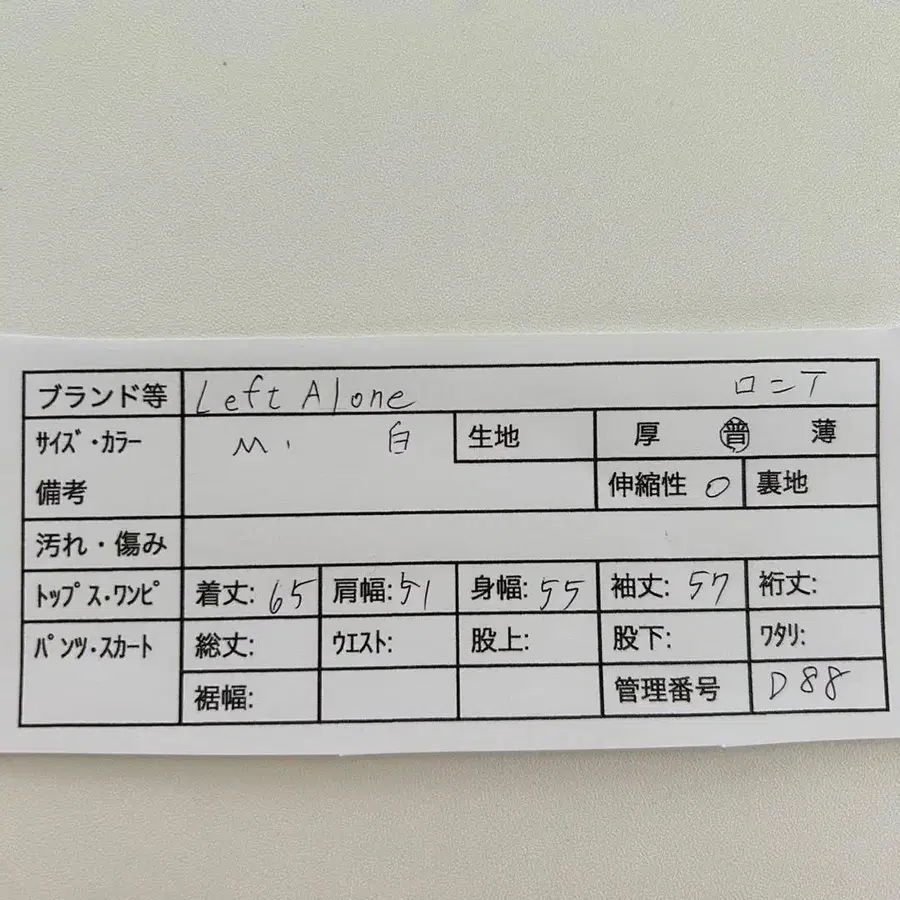 ブランド等 Left Alone ロンT
サイズ・カラー M. 白 生地 厚 普 薄
備考 伸縮性 ○ 裏地
汚れ・傷み
トップス・ワンピ 着丈: 65 肩幅: 51 身幅: 55 袖丈: 57 裄丈:
パンツ・スカート 総丈: ウエスト: 股上: 股下: ワタリ:
裾幅: 管理番号 D88